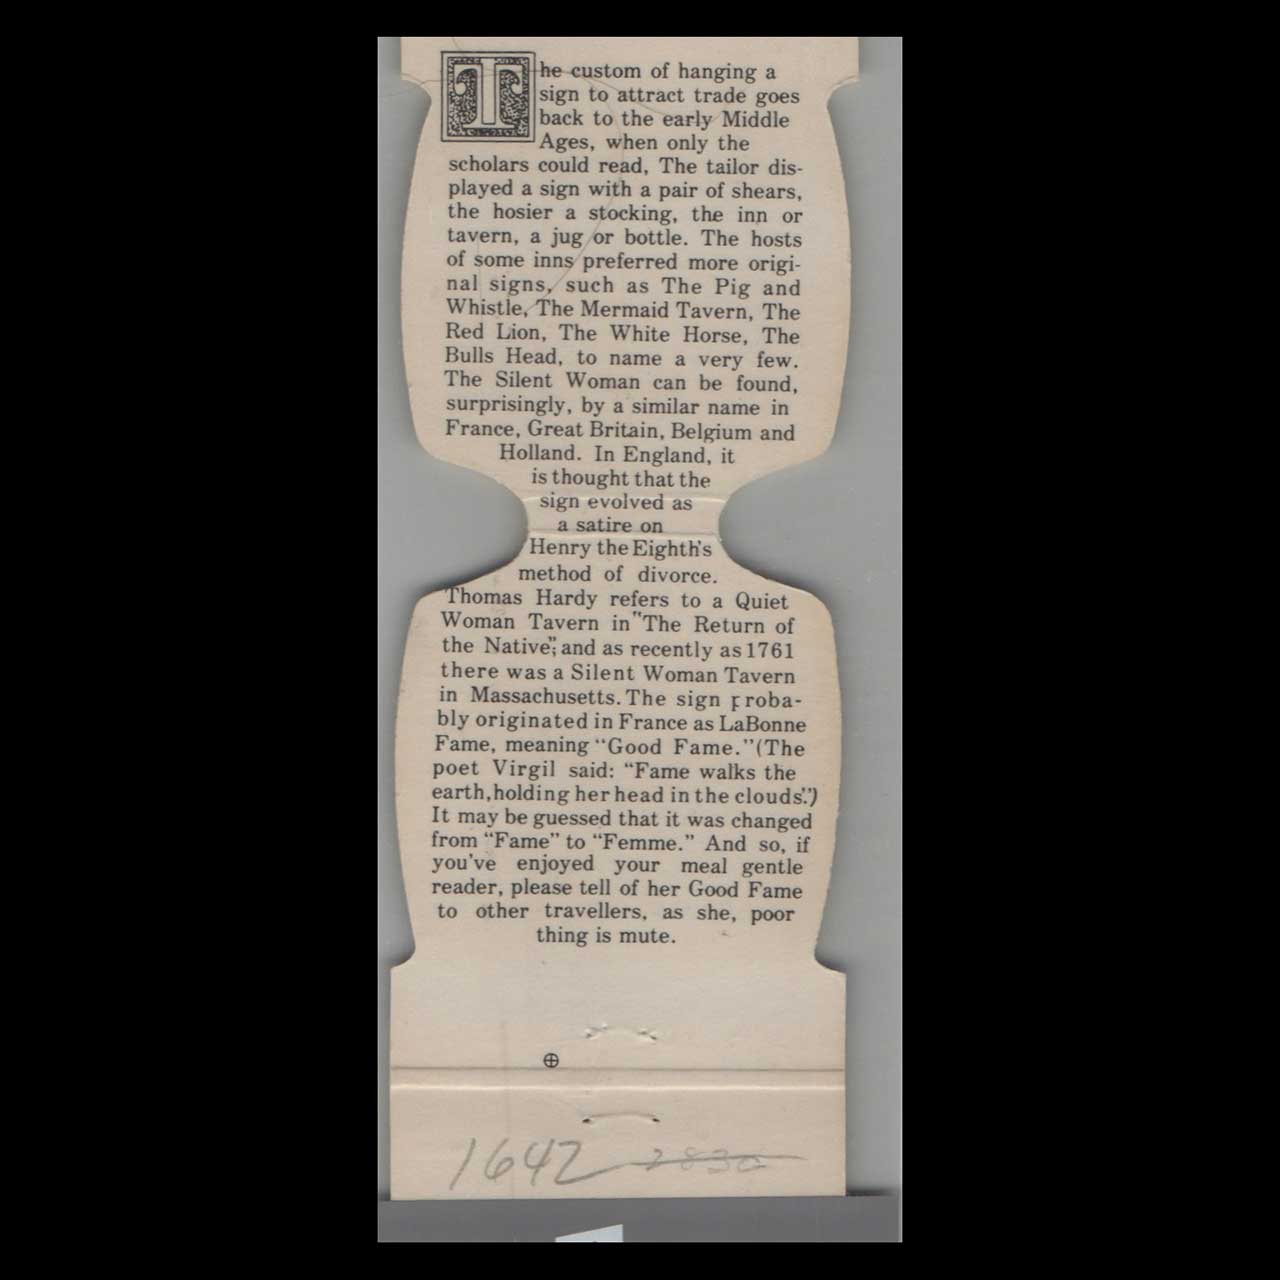 The custom of hanging a
sign to attract trade goes
back to the early Middle
Ages, when only the
scholars could read, The tailor dis-
played a sign with a pair of shears,
the hosier a stocking, the inn or
tavern, a jug or bottle. The hosts
of some inns preferred more origi-
nal signs, such as The Pig and
Whistle, The Mermaid Tavern, The
Red Lion, The White Horse, The
Bulls Head, to name a very few.
The Silent Woman can be found,
surprisingly, by a similar name in
France, Great Britain, Belgium and
Holland. In England, it
is thought that the
sign evolved as
a satire on
Henry the Eighth's
method of divorce.
Thomas Hardy refers to a Quiet
Woman Tavern in "The Return of
the Native"; and as recently as 1761
there was a Silent Woman Tavern
in Massachusetts. The sign proba-
bly originated in France as LaBonne
Fame, meaning "Good Fame." (The
poet Virgil said: "Fame walks the
earth, holding her head in the clouds.")
It may be guessed that it was changed
from "Fame" to "Femme." And so, if
you've enjoyed your meal gentle
reader, please tell of her Good Fame
to other travellers, as she, poor
thing is mute.
1642 2830